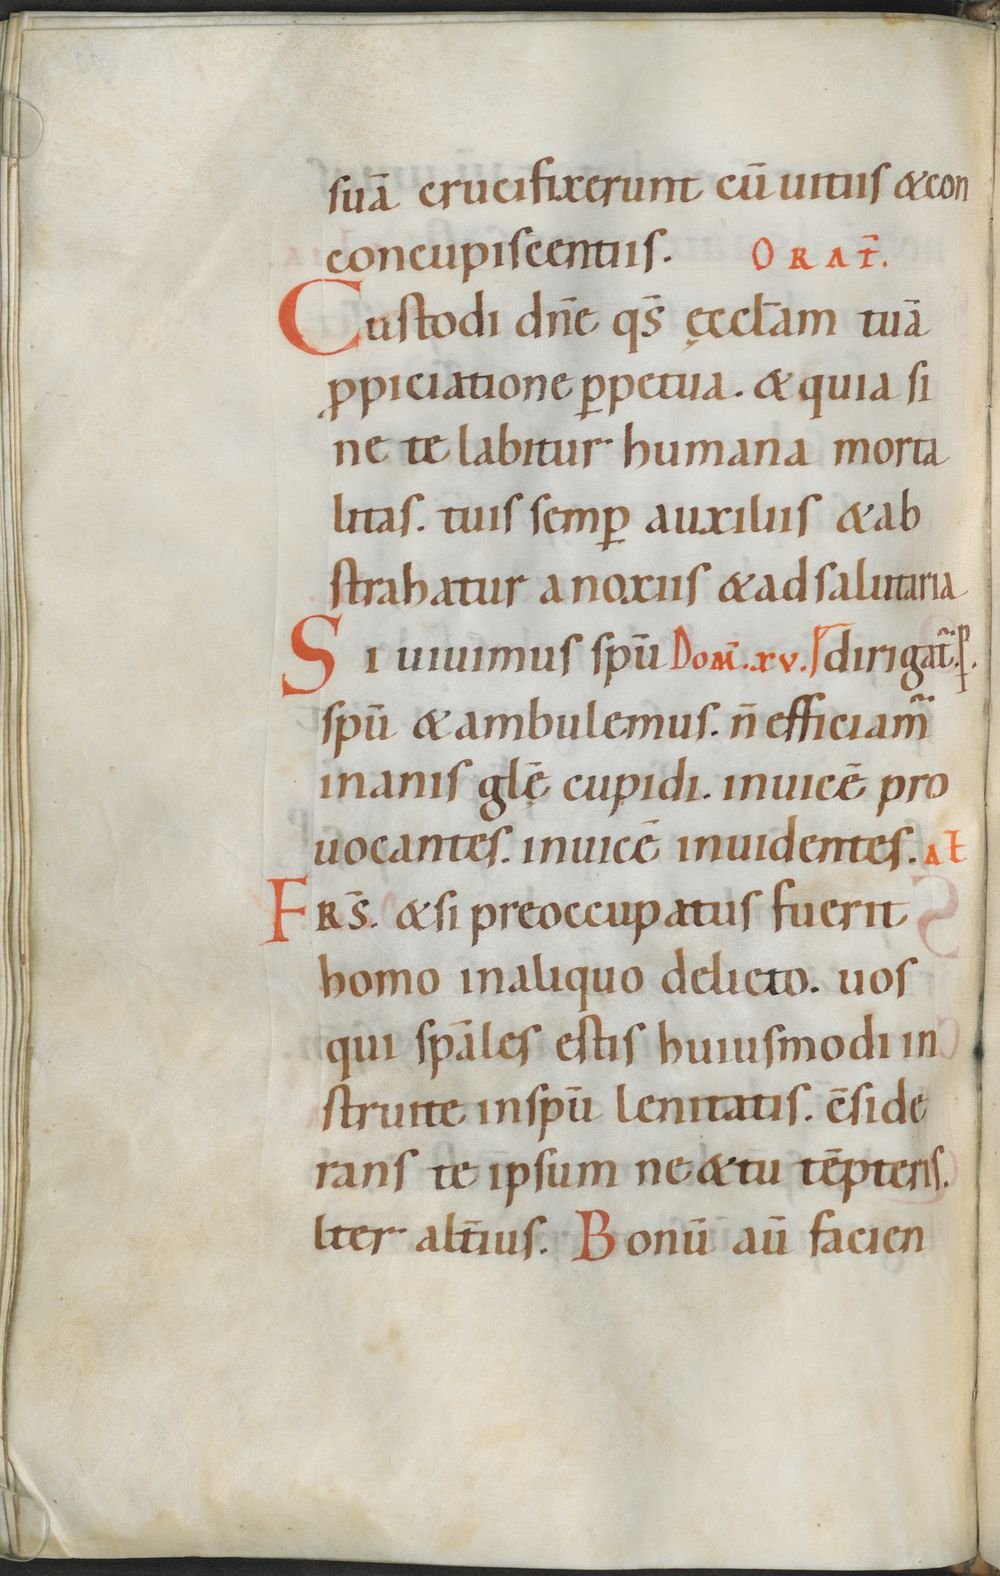 suā crucifixerunt cū uitiis & con
concupiscentiis. ORAT̄.
Custodi dn̄e qs̄ ęccłam tuā
ꝓpiciatione ꝑpetua. & quia si
ne te labitur humana morta
litas. tuis semꝑ auxiliis & ab
strahatur a noxiis & ad salutaria
Si uiuimus spū Dom̄. xv. dirigat̄. ꝑ.
spū & ambulemus. n̄ efficiam̄
inanis glę̄ cupidi. inuicē pro
uocantes. inuicē inuidentes. at
FRS̄. & si preoccupatus fuerit
homo in aliquo delicto. uos
qui spāles estis huiusmodi in
struite in spū lenitatis. c̄side
rans te ipsum ne & tu tēpteris.
lter alt̄ius. Bonū aū facien